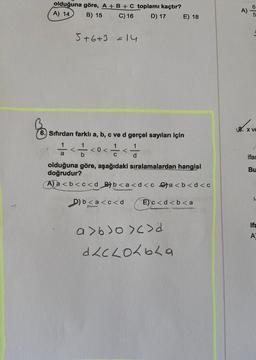 olduğuna göre, A + B + C toplamı kaçtır?
A) 14 B) 15 C) 16 D) 17 E) 18
5+6+3 = 14
8. Sıfırdan farklı a, b, c ve d gerçel sayıları için
1/a < 1/b < 0 < 1/c < 1/d
olduğuna göre, aşağıdaki sıralamalardan hangisi
doğrudur?
A) a < b < c < d B) b < a < d < c C) a < b < d < c
D) b < a < c < d E) c < d < b < a
a>b>0>c>d
d<c<0<b<a
A)
x ve
Ifa
Bu
Ifa
A)